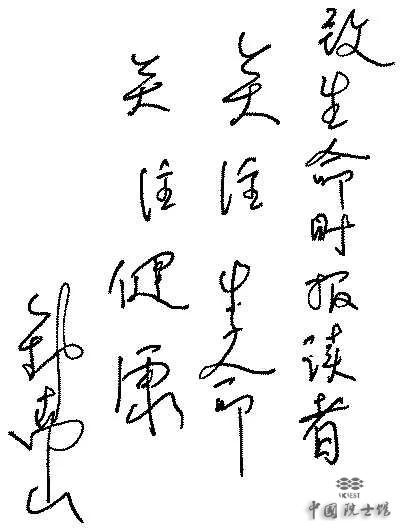 致生命时报读者
关注生命
关注健康
钟南山
中国院士馆